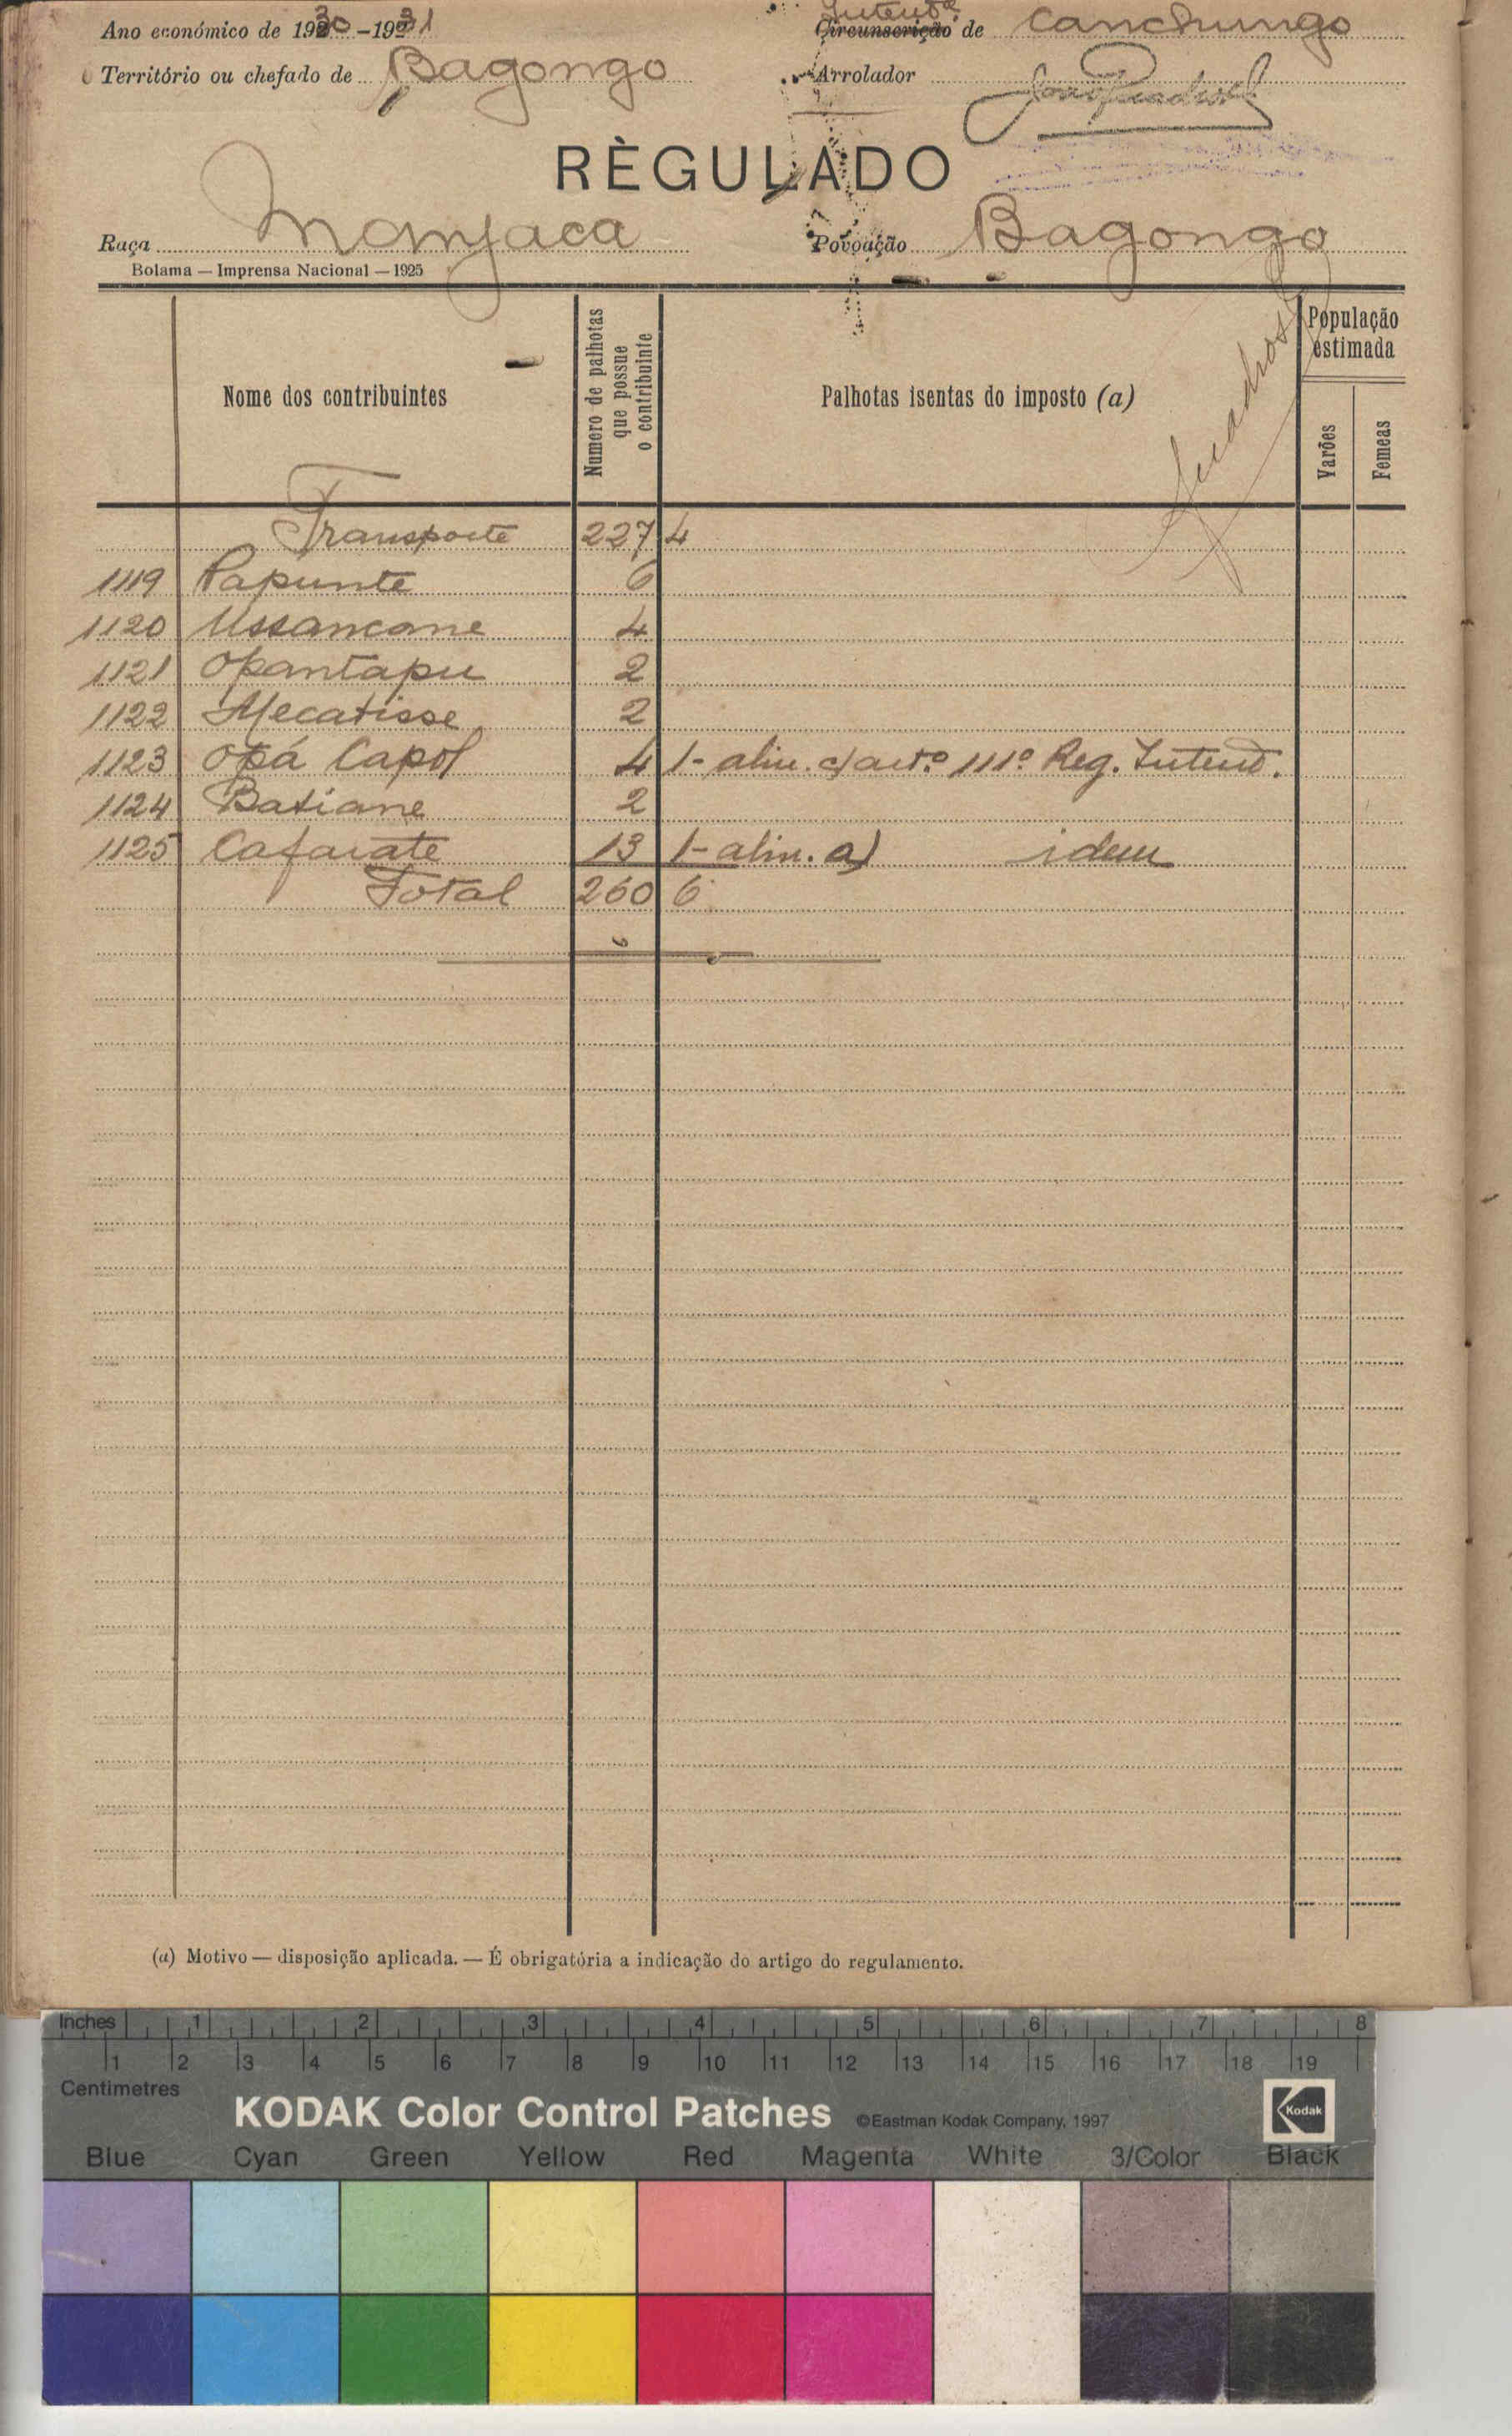 Ano económico de 1930-1931 Intend.ª Circunscrição de Canchungo
Território ou chefado de Bagongo Arrolador
RÈGULADO
Raça Manjaca Povoação Bagongo
Bolama — Imprensa Nacional — 1925
Nome dos contribuintes
Numero de palhotas que possue o contribuinte
Palhotas isentas do imposto (a)
População estimada
Varões
Femeas
Transporte 227 4
1119 Papunte 6
1120 Ussancane 4
1121 Opantapu 2
1122 Mecatisse 2
1123 Opá Capol 4 1- alin. c) art.º 111º Reg. Intend.
1124 Batiane 2
1125 Cafarate 13 1- alin. a) idem
Total 260 6
(a) Motivo — disposição aplicada. — É obrigatória a indicação do artigo do regulamento.
Inches 1 2 3 4 5 6 7 8
1 2 3 4 5 6 7 8 9 10 11 12 13 14 15 16 17 18 19
Centimetres
KODAK Color Control Patches ©Eastman Kodak Company, 1997 Kodak
Blue Cyan Green Yellow Red Magenta White 3/Color Black